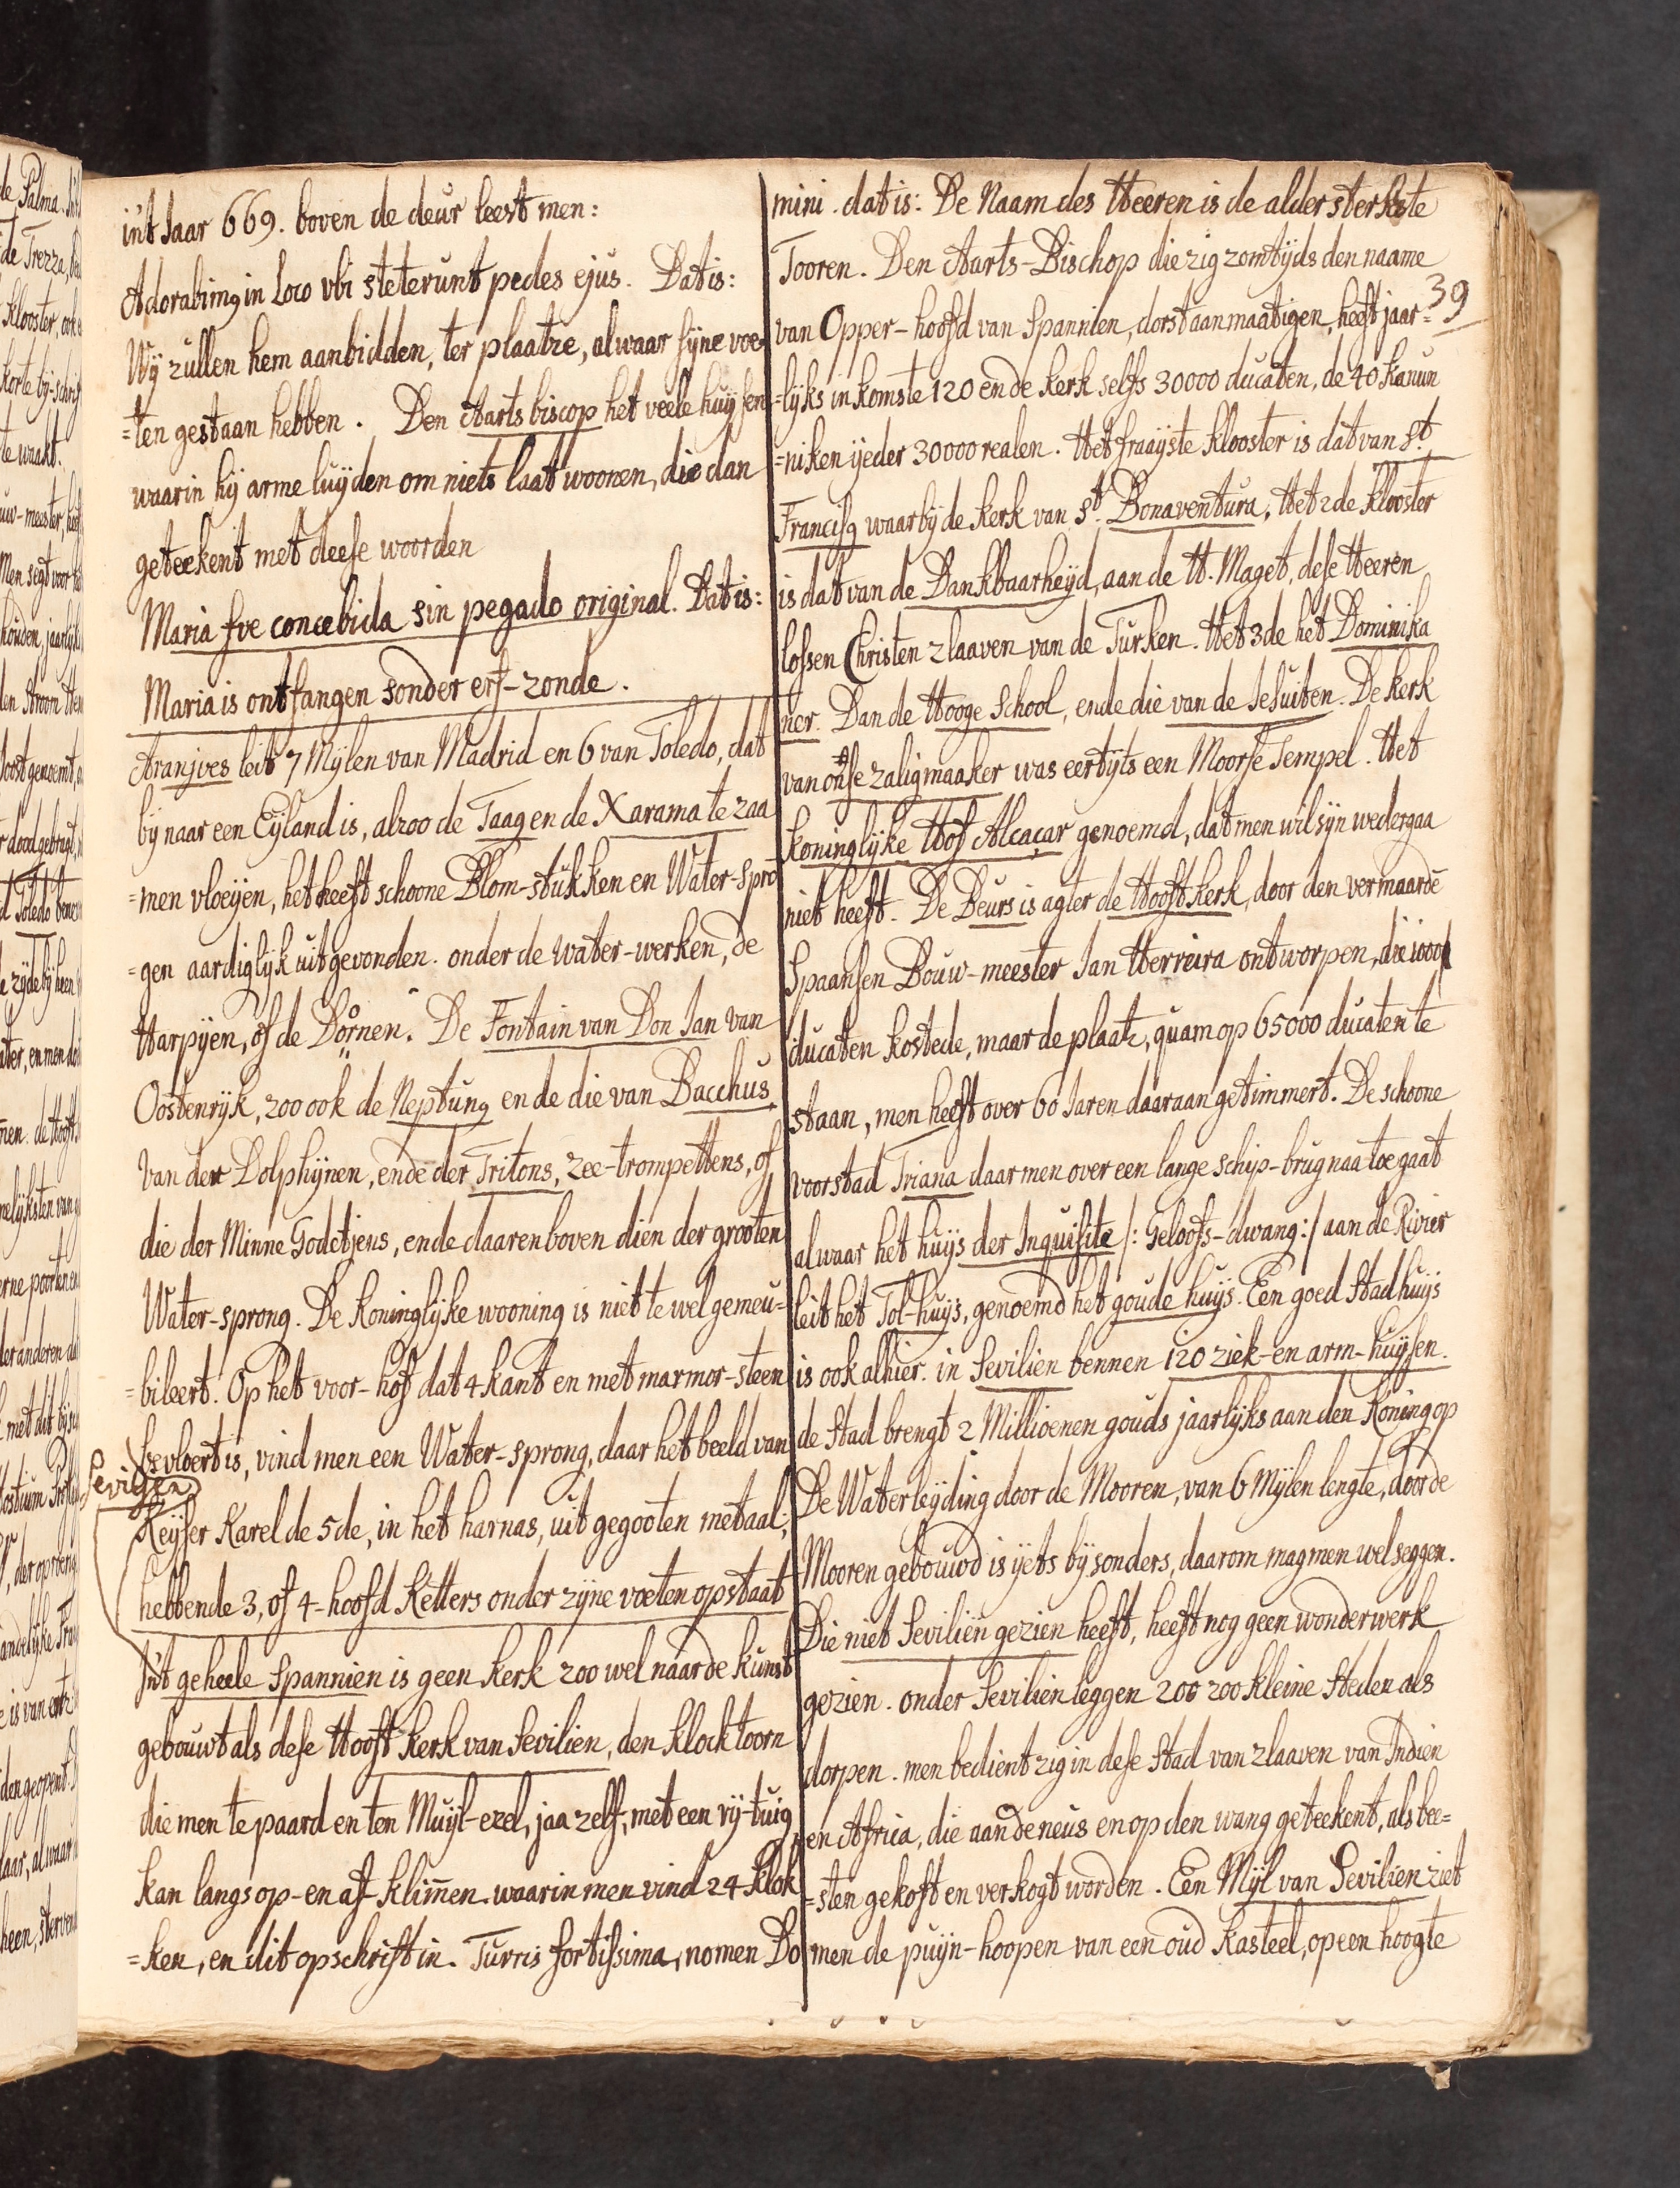 in't Jaar 669. boven de deur leest men:
Adorabimg in Loco vbi steterunt pedes ejus. Dat is:
Wÿ zullen hem aanbidden, ter plaatze, alwaar sÿne voe-
=ten gestaan hebben. Den Aartsbiscop het veele huÿsen
waarin hÿ arme luÿden om niets laat woonen, die dan
geteekent met deese woorden
Maria fve concebida sin pegado original. Dat is:
Maria is ontfangen sonder erf-zonde.
Aranjves leit 7 Mÿlen van Madrid en 6 van Toledo, dat
bÿ naar een Eÿland is, alzoo de Taag en de Xarama te zaa
=men vloeÿen, het heeft schoone Blom-stukken en Water-spro
=gen aardiglÿk uitgevonden. onder de water-werken, de
Harpÿen, of de Dörnen. De Fontain van Don Jan van
Oostenrÿk, zoo ook de Neptung ende die van Bacchus,
van der Dolphÿnen, ende der Tritons, zee-trompettens, of
die der Minne Godetjens, ende daarenboven dien der grooten
Water-sprong. De Koninglÿke wooning is niet te wel gemeu=
=bileert. Op het voor-hof dat 4 kant en met marmor-steen
bevloert is, vind men een Water-sprong, daar het beeld van
Sevilien
Keÿser Karel de 5de, in het harnas, uit gegooten metaal;
hebbende 3, of 4-hoofd Ketters onder zÿne voeten op staat
In't geheele Spannien is geen kerk zoo wel naar de kunst
gebouwt als dese Hooft kerk van Sevilien, den klocktoorn
die men te paard en ten Muÿl-ezel, jaa zelf, met een rÿ-tuig
kan langs op-en af-klim̄en. waarin men vind 24-klok
=ken, en dit opschrift in. Turris fortissima, nomen Do
mini. dat is: De Naam des Heeren is de aldersterkste
Tooren. Den Aarts-Bischop die zig zomtÿds den naame
39
van Opper-hoofd van Spannien, dorst aanmaatigen, heeft jaar=
=lÿks inkomste 120 ende kerk selfs 30000 ducaten, de 40 Kanun
=niken ÿeder 30000 realen. Het fraaÿste klooster is dat van St.
Francisg waarbÿ de kerk van St. Bonaventura, Het 2de klooster
is dat van de Dankbaarheÿd, aan de H. Maget, dese Heeren
lossen Christen zlaaven van de Turken. Het 3de het Dominika
ner. Dan de Hooge School, ende die van de Jesuiten. De kerk
van onse zaligmaaker was eertÿts een Moorse Tempel. Het
Koninglÿke Hof Alcaçar genoemd, dat men wil sÿn wedergaa
niet heeft. De Beurs is agter de Hooft kerk, door den vermaarde
Spaansen Bouw-meester Jan Herreira ontworpen, die 1000
ducaten kostede, maar de plaatz, quam op 65000 ducaten te
staan, men heeft over 60 Jaren daaraan getimmert. De schoone
voorstad Triana daar men over een lange schip-brug naa toe gaat
alwaar het huÿs der Inquisite /: Geloofs-dwang:/ aan de Rivier
leit het Tol-huÿs, genoemd het goude huÿs. Een goed Stadhuÿs
is ook alhier. in Sevilien bennen 120 ziek-en arm-huÿsen.
de Stad brengt 2 Millioenen gouds jaarlÿks aan den Koning op
De Waterleÿding door de Mooren, van 6 Mÿlen lengte, door de
Mooren gebouwd is ÿets bÿsonders, daarom mag men wel seggen.
Die niet Sevilien gezien heeft, heeft nog geen wonderwerk
gezien. onder Sevilien leggen 200 zoo kleine steden als
dorpen. men bedient zig in dese stad van zlaaven van Indien
en Africa, die aan de neus en op den wang geteekent, als bee=
=sten gekoft en verkogt worden. Een Mÿl van Sevilien ziet
men de puÿn-hoopen van een oud Kasteel, op een hoogte